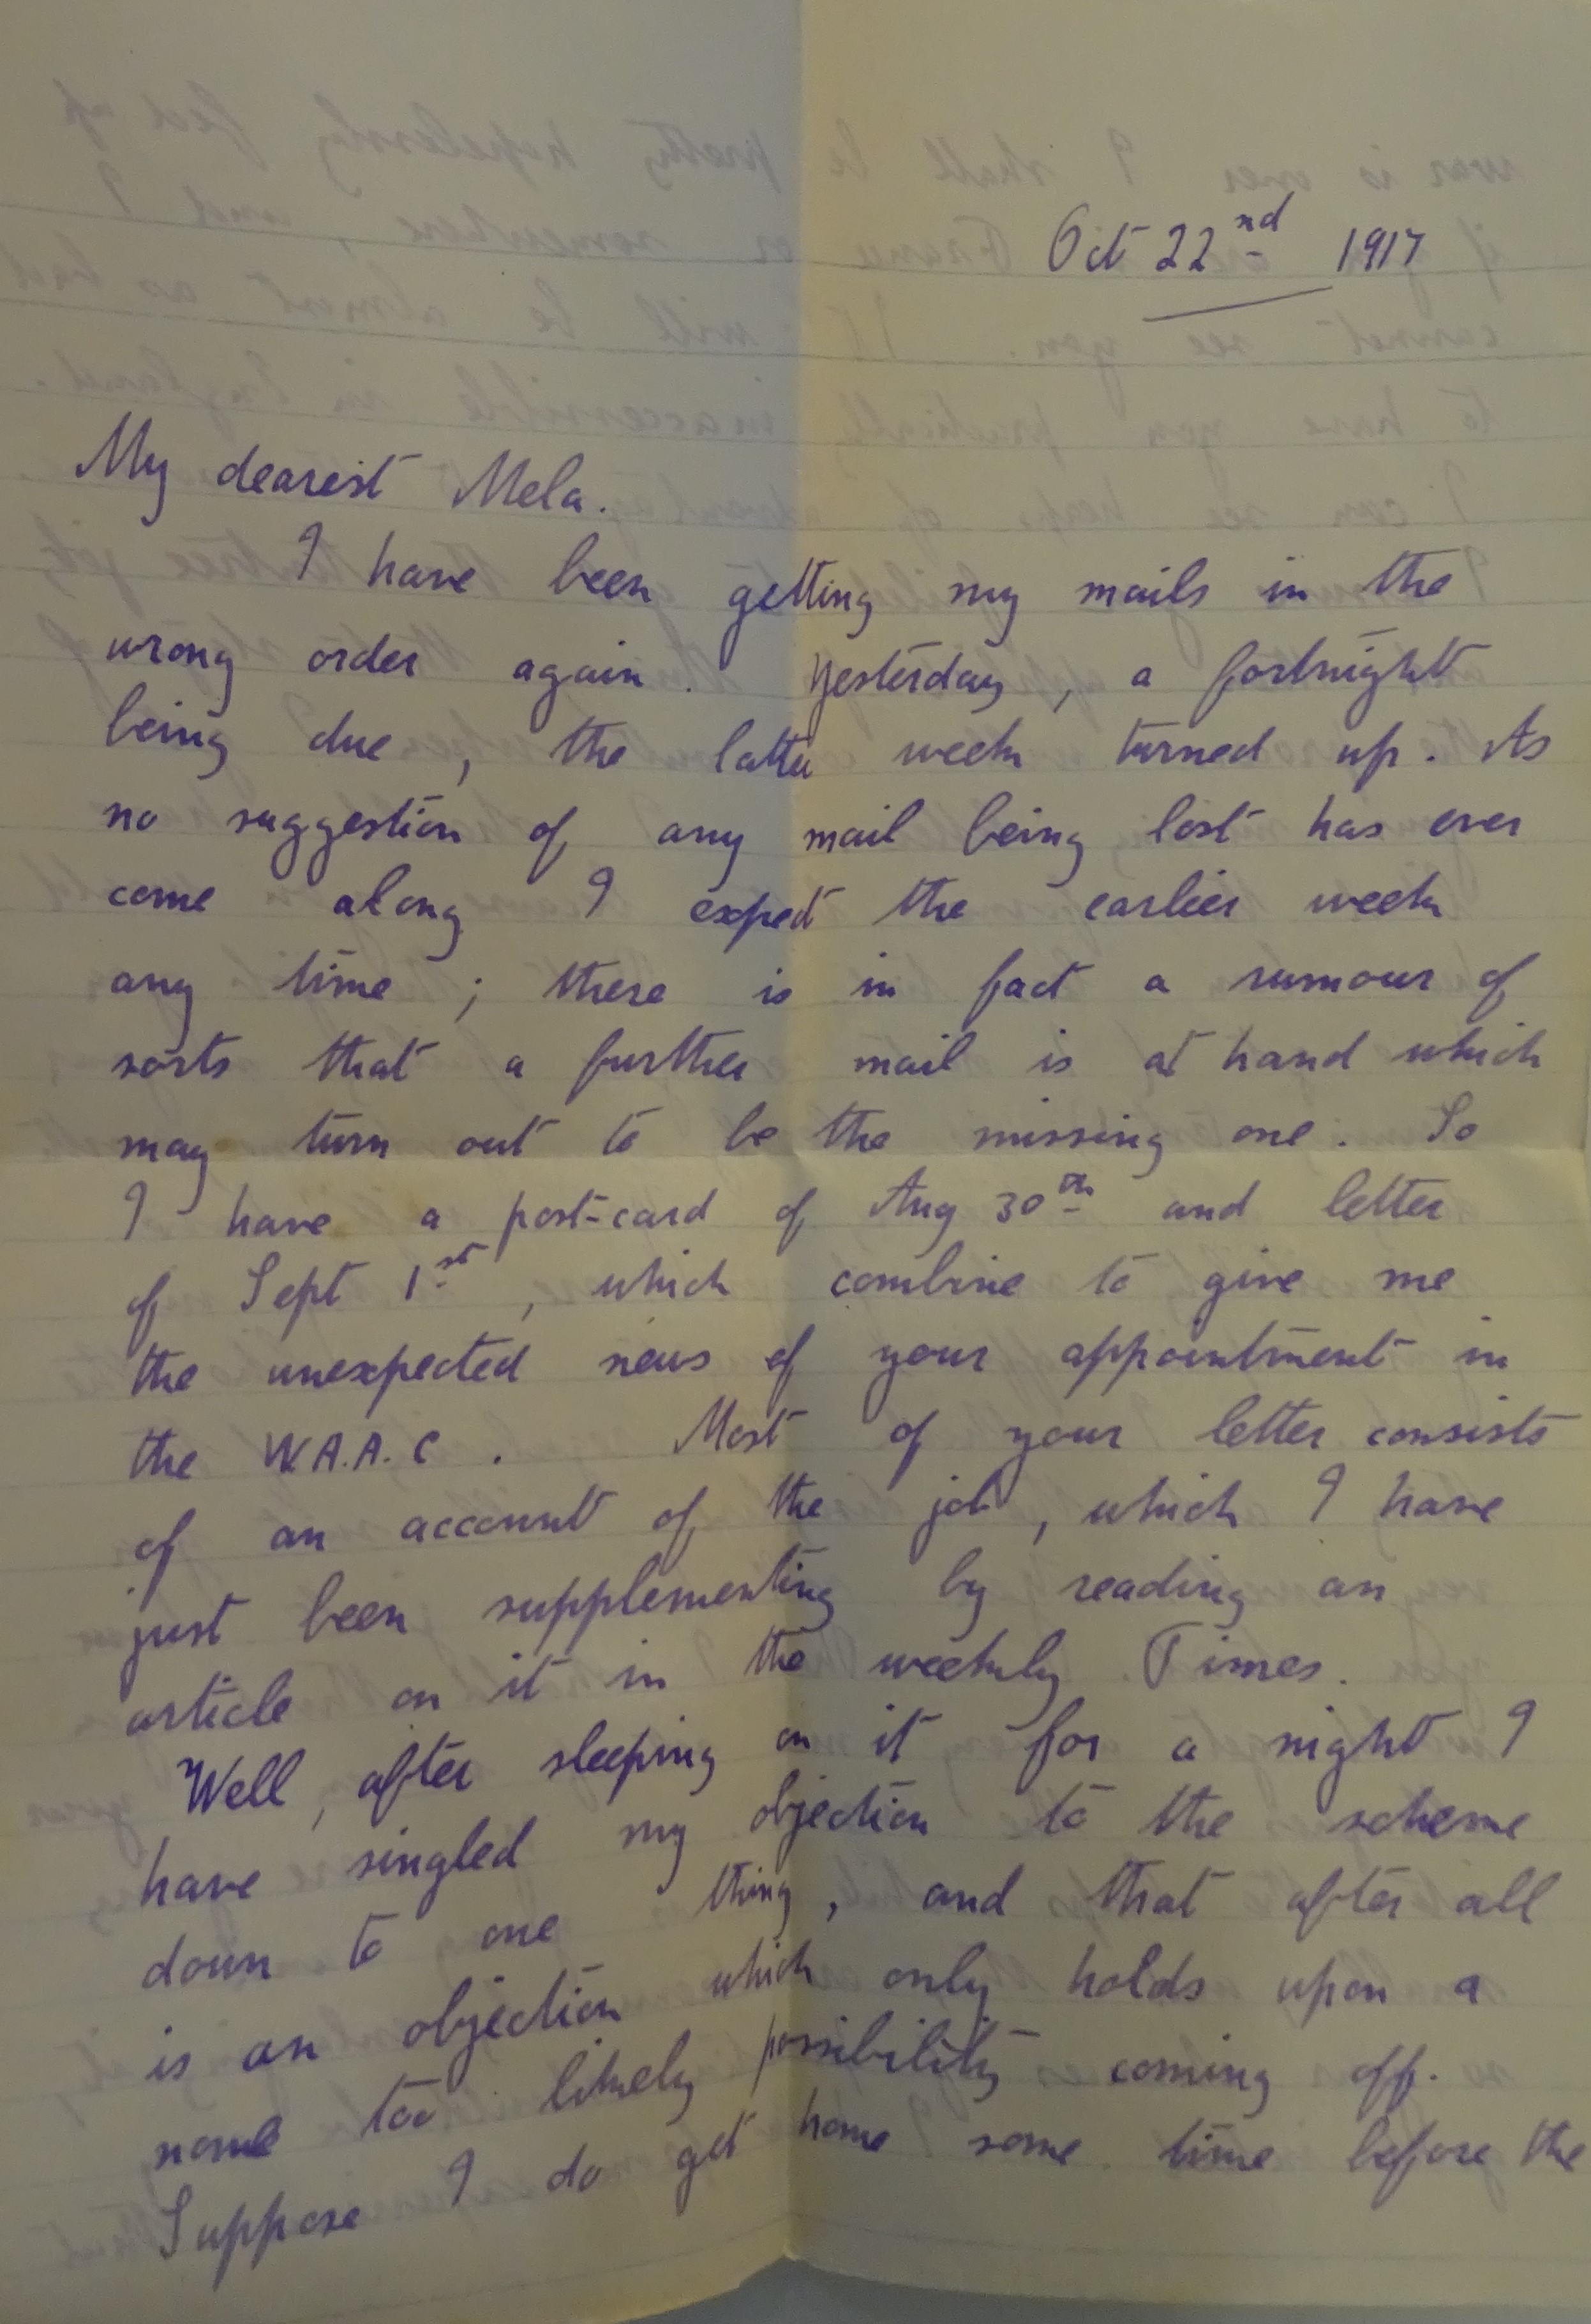 Oct 22nd 1917
My dearest Mela.
I have been getting my mails in the
wrong order again. Yesterday, a fortnight
being due, the latter week turned up. As
no suggestion of any mail being lost has ever
come along I expect the earlier week
any time; there is in fact a rumour of
sorts that a further mail is at hand which
may turn out to be the missing one. So
I have a post-card of Aug 30th and letter
of Sept 1st, which combine to give me
the unexpected news of your appointment in
the W.A.A.C. Most of your letter consists
of an account of the job, which I have
just been supplementing by reading an
article on it in the weekly Times.
Well, after sleeping on it for a night I
have singled my objection to the scheme
down to one thing, and that after all
is an objection which only holds upon a
none too likely possibility coming off.
Suppose I do get home some time before the